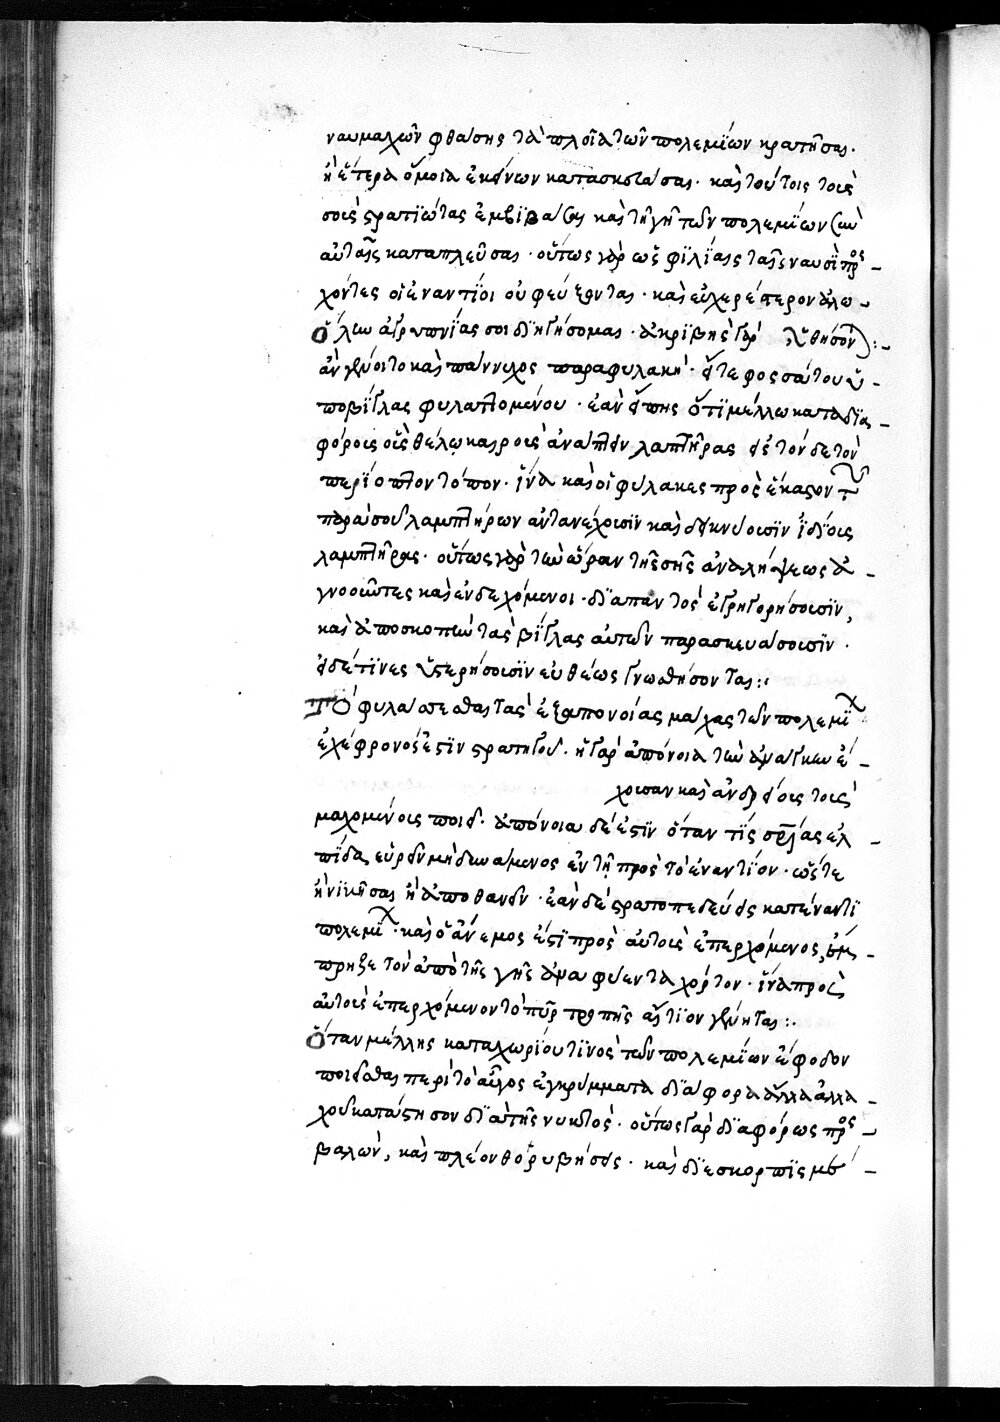 ναυμαχῶν φθάσης τὰ πλοῖα τῶν πολεμΐων κρατῆσαι·
ἢ ἕτερα ὅμοια ἐκείνων κατασκευάσαι· καὶ τούτοις τοὺς
σοὺς στρατϊώτας ἐμβϊβάσεις καὶ τῆ γῆ τῶν πολεμΐων σὺν
αὐταῖς καταπλεῦσαι· οὕτως γὰρ ὡς φϊλΐαις ταῖς ναυσῒ προσ-
χόντες οἱ ἐναντΐοι οὐ φεύξονται· καὶ εὐχερέστερον ἁλω-
θήσονται:-
Ὅλην ἀγρυπνΐας σοι δϊηγήσομαι· ἀκρϊβὴς γὰρ
ἂν γένοιτο καὶ πάννυχος παραφυλακή· εἴτε φοσάτου ὑ-
ποβΐγλας φυλαττομένου· ἐὰν εἴπης ὅτϊ μέλλω κατὰ δϊα-
φόροις οἷς θέλω καιροῖς ἀνάπτειν λαπτῆρας εἰς τόνδε τὸν
περΐοπτον τόπον· ἵνα καὶ οἱ φύλακες πρὸς ἕκαστον τῶν
παρὰ σοῦ λαμπτήρων ἀντανέχουσϊν καὶ δεικνύουσϊν ἰδΐοις
λαμπτῆρας· οὕτως γὰρ τὴν ὥραν τῆς σῆς ἀναλήψεως ἀ-
γνοοῦντες καὶ ἐνδεχόμενοι· δϊαπαντὸς ἐγρηγορήσουσϊν,
καὶ ἀποσκοπεῖν τὰς βΐγλας αὐτῶν παρασκευάσουσϊν·
εἰ δέ τϊνες ὑστερήσουσϊν εὐθέως γνωσθήσονται:·
Τὸ φυλάττεσθαι τὰς ἐξ ἀπονοίας μάχας τῶν πολεμΐων
ἐχέφρονός ἐστϊν στρατηγοῦ· ἡ γὰρ ἀπόνοια τὴν ἀνάγκην ἐ-
χουσαν καὶ ἀνδρείους τοὺς
μαχομένους ποιεῖ· ἀπόνοια δέ ἐστϊν ὅταν τῒς σωτηρίας ἐλ
πΐδα εὑρεῖν μὴ δυνάμενος ἐν τῆ πρὸς τὸ ἐναντΐον· ὥστε
ἢ νϊκῆσαι ἢ ἀποθανεῖν· ἐὰν δὲ στρατοπεδεύεις κατέναντϊ
πολεμΐων· καὶ ὁ ἄνεμος ἐστῒ πρὸς αὐτοὺς ἐπερχόμενος, ἐμ-
πρηξε τὸν ἀπὸ τῆς γῆς ἀναφύεντα χόρτον· ἵνα πρὸς
αὐτοὺς ἐπερχόμενον τὸ πῦρ τροπῆς αἴτϊον γένηται:·
Ὅταν μέλλης κατὰ χωρίου τϊνὸς τῶν πολεμΐων ἔφοδον
ποιεῖσθαι περὶ τὸ αἶπος ἐγκρύμματα δϊάφορα ἄλλα ἀλλα-
χοῦ κατάστησον δϊὰ τῆς νυκτός· οὕτως γὰρ δϊαφόρως προσ-
βαλών, καὶ πλέον θορυβήσεις· καὶ δϊεσκορπϊσμέ-